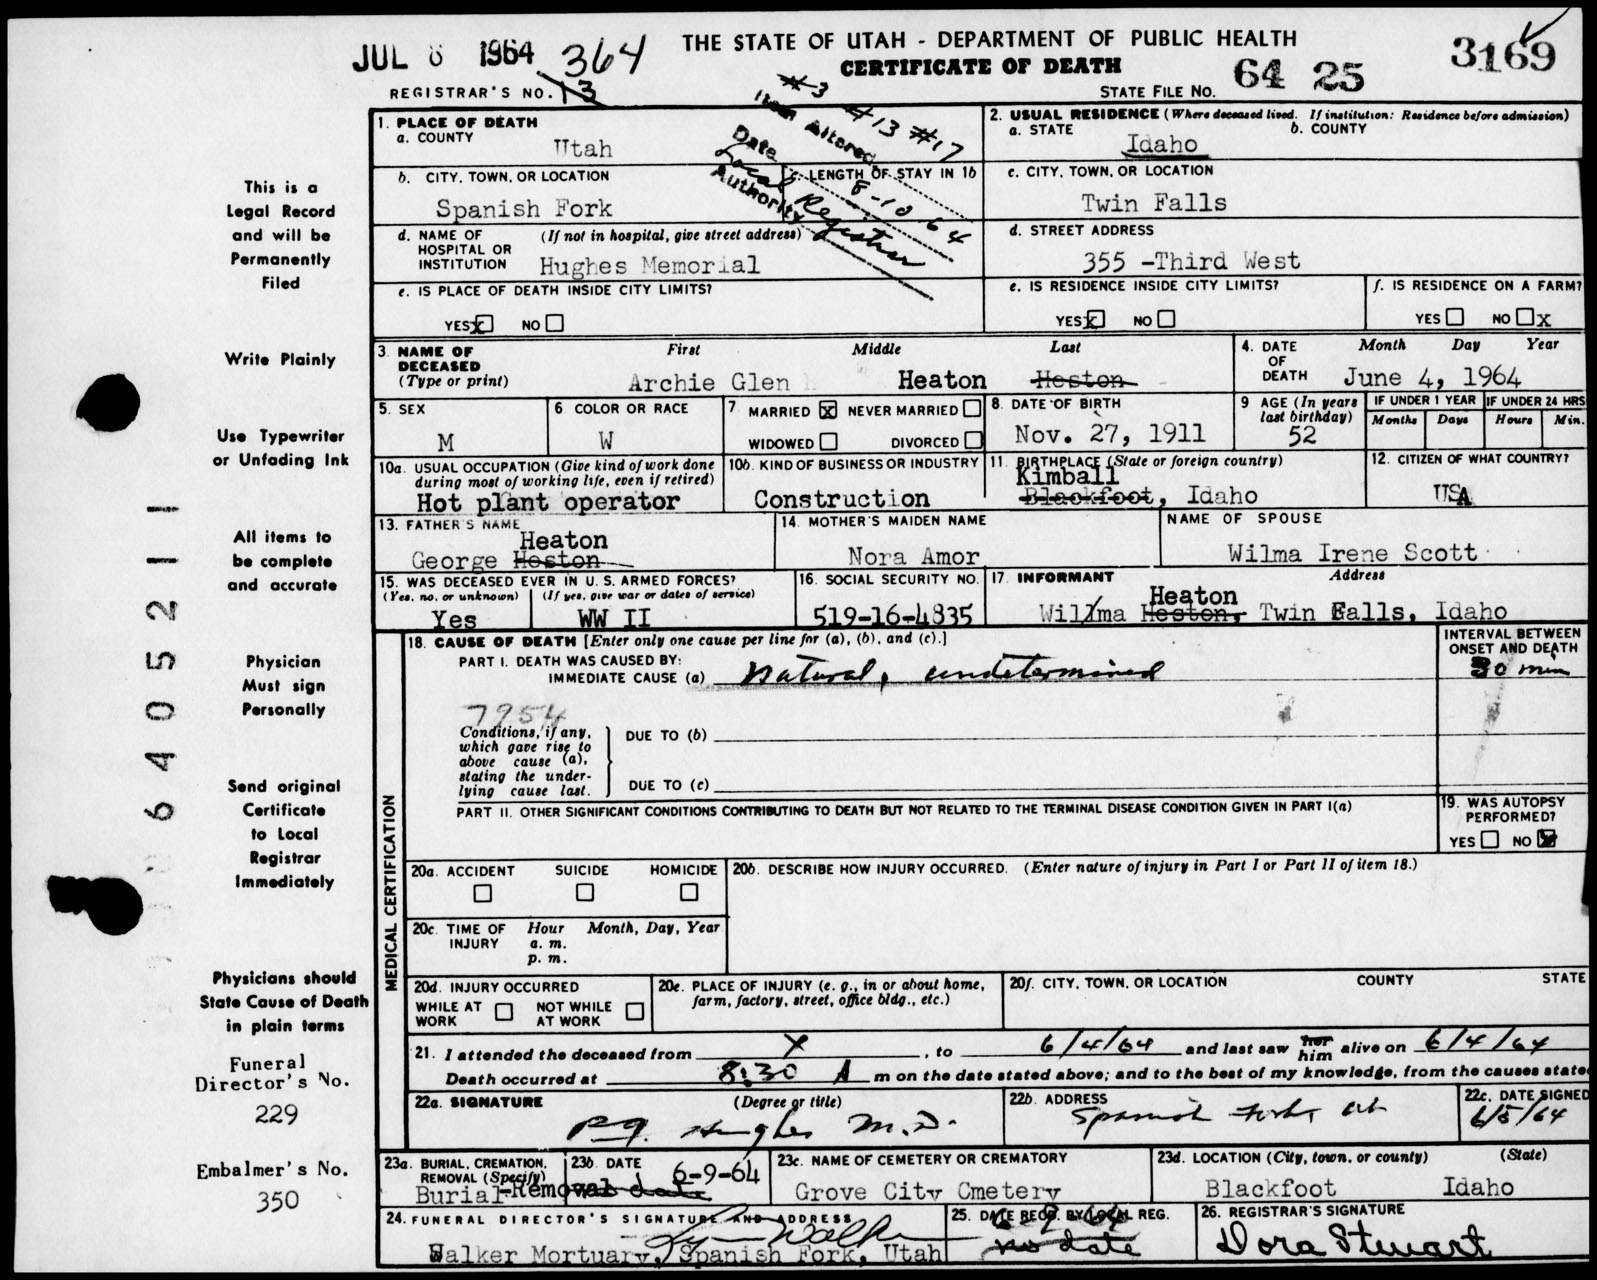 JUL 6 1964 364
THE STATE OF UTAH - DEPARTMENT OF PUBLIC HEALTH
CERTIFICATE OF DEATH
3169
REGISTRAR'S NO. 13
STATE FILE NO. 64 25
#3 #13 #17
Item Altered
Date 8-10-64
Local Registrar
Authority
This is a
Legal Record
and will be
Permanently
Filed
Write Plainly
Use Typewriter
or Unfading Ink
All items to
be complete
and accurate
Physician
Must sign
Personally
Send original
Certificate
to Local
Registrar
Immediately
Physicians should
State Cause of Death
in plain terms
Funeral
Director's No.
229
Embalmer's No.
350
64 0 5 2 1 1
1. PLACE OF DEATH
a. COUNTY
Utah
2. USUAL RESIDENCE (Where deceased lived. If institution: Residence before admission)
a. STATE b. COUNTY
Idaho
b. CITY, TOWN, OR LOCATION
Spanish Fork
LENGTH OF STAY IN 1b
c. CITY, TOWN, OR LOCATION
Twin Falls
d. NAME OF (If not in hospital, give street address)
HOSPITAL OR
INSTITUTION Hughes Memorial
d. STREET ADDRESS
355 -Third West
e. IS PLACE OF DEATH INSIDE CITY LIMITS?
YES X NO
e. IS RESIDENCE INSIDE CITY LIMITS?
YES X NO
f. IS RESIDENCE ON A FARM?
YES NO X
3. NAME OF DECEASED First Middle Last
(Type or print) Archie Glen Heaton Heston
4. DATE OF DEATH Month Day Year
June 4, 1964
5. SEX
M
6 COLOR OR RACE
W
7 MARRIED X NEVER MARRIED
WIDOWED DIVORCED
8. DATE OF BIRTH
Nov. 27, 1911
9 AGE (In years last birthday)
52
IF UNDER 1 YEAR IF UNDER 24 HRS
Months Days Hours Min.
10a. USUAL OCCUPATION (Give kind of work done
during most of working life, even if retired)
Hot plant operator
10b. KIND OF BUSINESS OR INDUSTRY
Construction
11. BIRTHPLACE (State or foreign country)
Kimball
Blackfoot, Idaho
12. CITIZEN OF WHAT COUNTRY?
USA
13. FATHER'S NAME
Heaton
George Heston
14. MOTHER'S MAIDEN NAME
Nora Amor
NAME OF SPOUSE
Wilma Irene Scott
15. WAS DECEASED EVER IN U. S. ARMED FORCES?
(Yes, no, or unknown) (If yes, give war or dates of service)
Yes WW II
16. SOCIAL SECURITY NO.
519-16-4835
17. INFORMANT Address
Heaton
Willma Heston, Twin Falls, Idaho
18. CAUSE OF DEATH [Enter only one cause per line for (a), (b), and (c).]
INTERVAL BETWEEN
ONSET AND DEATH
PART I. DEATH WAS CAUSED BY:
IMMEDIATE CAUSE (a) Natural, undetermined
30 min
7954
Conditions, if any,
which gave rise to
above cause (a),
stating the under-
lying cause last.
DUE TO (b)
DUE TO (c)
PART II. OTHER SIGNIFICANT CONDITIONS CONTRIBUTING TO DEATH BUT NOT RELATED TO THE TERMINAL DISEASE CONDITION GIVEN IN PART I(a)
19. WAS AUTOPSY
PERFORMED?
YES NO X
MEDICAL CERTIFICATION
20a. ACCIDENT SUICIDE HOMICIDE
20b. DESCRIBE HOW INJURY OCCURRED. (Enter nature of injury in Part I or Part II of item 18.)
20c. TIME OF INJURY Hour Month, Day, Year
a. m.
p. m.
20d. INJURY OCCURRED
WHILE AT WORK NOT WHILE AT WORK
20e. PLACE OF INJURY (e. g., in or about home,
farm, factory, street, office bldg., etc.)
20f. CITY, TOWN, OR LOCATION COUNTY STATE
21. I attended the deceased from X , to 6/4/64 and last saw her him alive on 6/4/64
Death occurred at 8:30 A m on the date stated above; and to the best of my knowledge, from the causes state
22a. SIGNATURE (Degree or title)
Hughes M.D.
22b. ADDRESS
Spanish Fork, Ut
22c. DATE SIGNED
6/5/64
23a. BURIAL, CREMATION,
REMOVAL (Specify)
Burial-Removal
23b. DATE
6-9-64
no date
23c. NAME OF CEMETERY OR CREMATORY
Grove City Cmetery
23d. LOCATION (City, town, or county) (State)
Blackfoot Idaho
24. FUNERAL DIRECTOR'S SIGNATURE AND ADDRESS
Walker Mortuary, Spanish Fork, Utah
25. DATE RECD. BY LOCAL REG.
6-9-64
no date
26. REGISTRAR'S SIGNATURE
Dora Stewart